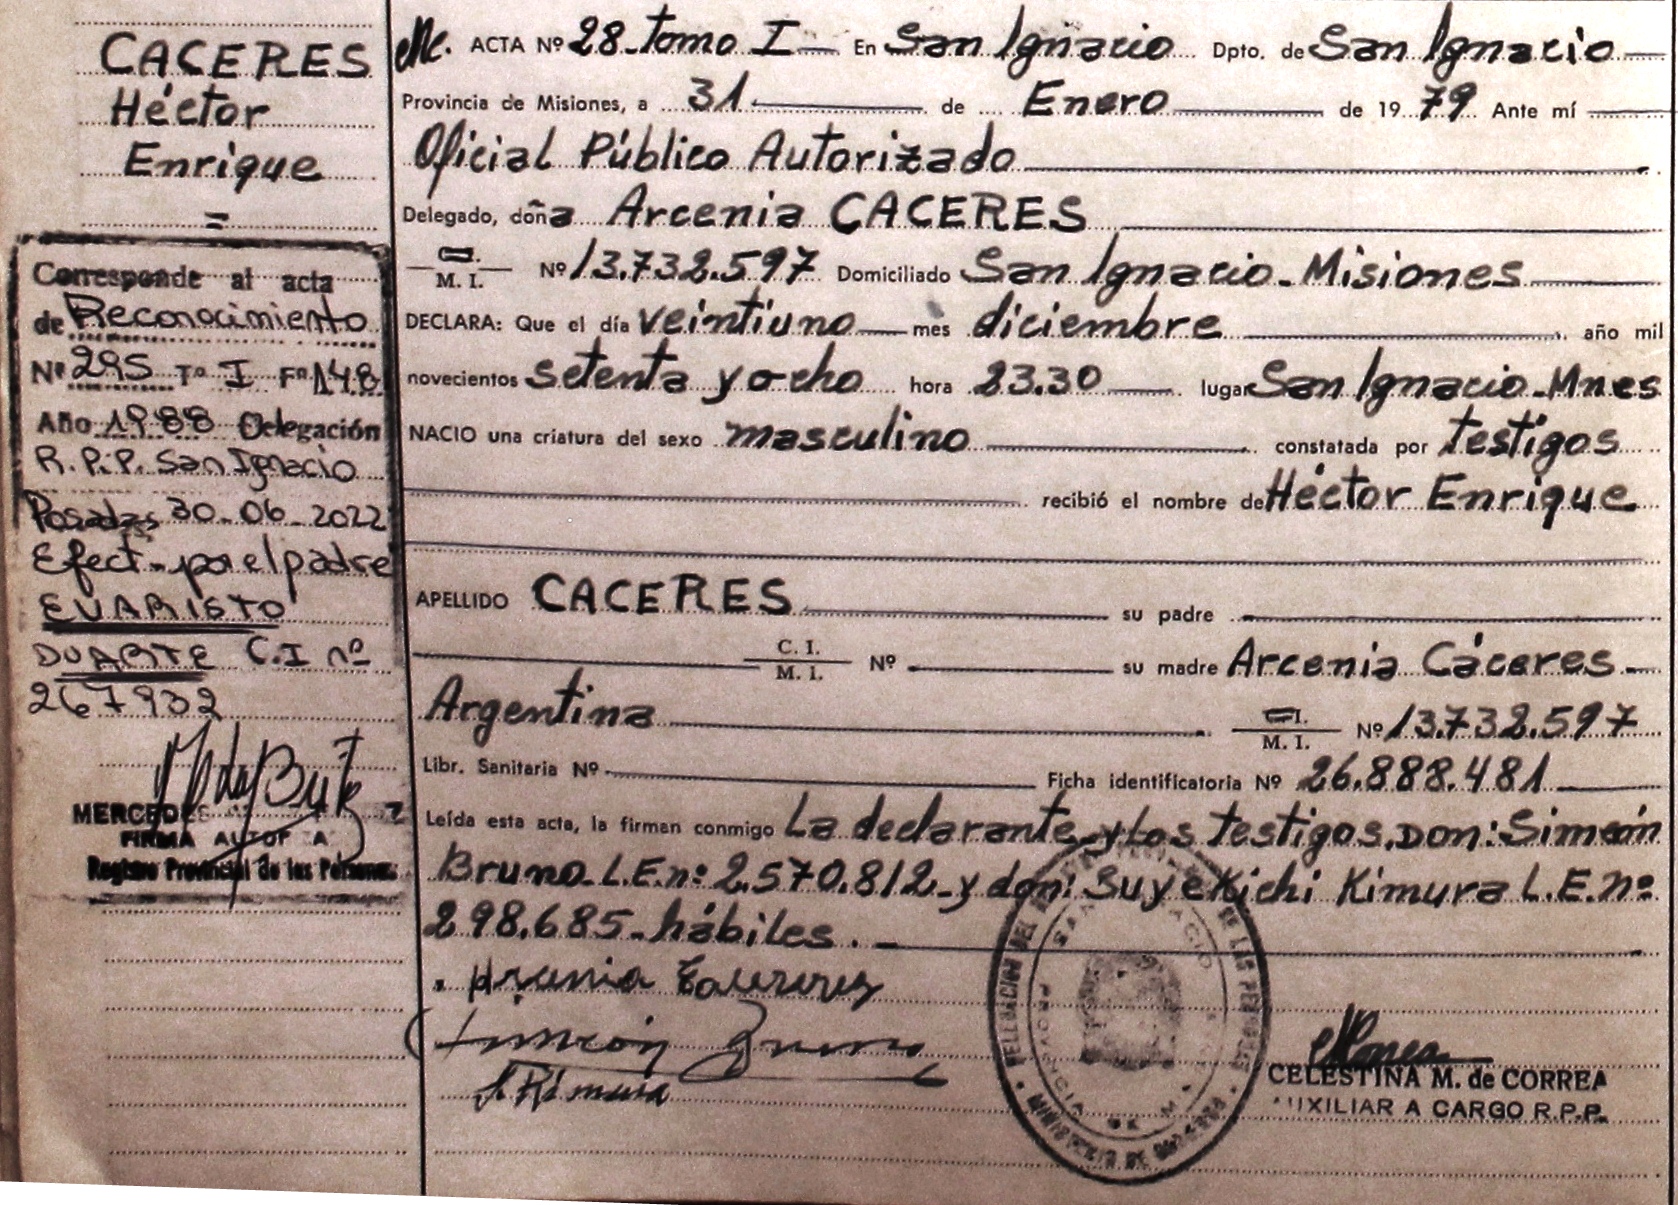 CACERES
Héctor
Enrique
=
Corresponde al acta
de Reconocimiento
Nº 295 Tº I Fº 148
Año 1988 Delegación
R.P.P. San Ignacio
Posadas 30-06-2022
Efect. por el padre
EVARISTO
DUARTE C.I nº
267932
MERCEDES
FIRMA
Registro Provincial de las Personas
ACTA Nº 28 Tomo I En San Ignacio Dpto. de San Ignacio
Provincia de Misiones, a 31 de Enero de 1979 Ante mí
Oficial Público Autorizado
Delegado, doña Arcenia CACERES
M. I. Nº 13.732.597 Domiciliado San Ignacio - Misiones
DECLARA: Que el día veintiuno mes diciembre, año mil
novecientos setenta y ocho hora 23.30 lugar San Ignacio - Mnes
NACIO una criatura del sexo masculino constatada por testigos
recibió el nombre de Héctor Enrique
APELLIDO CACERES su padre
C. I. M. I. Nº su madre Arcenia Cáceres -
Argentina M. I. Nº 13.732.597
Libr. Sanitaria Nº Ficha identificatoria Nº 26.888.481
Leída esta acta, la firman conmigo La declarante y Los testigos, Don: Simeón
Bruno L.E.nº: 2.570.812 - y don: Suyekichi Kimura L.E.nº
298.685 - hábiles. -
Arcenia Caceres
Simeón Bruno
S. Kimura
CELESTINA M. de CORREA
AUXILIAR A CARGO R.P.P.